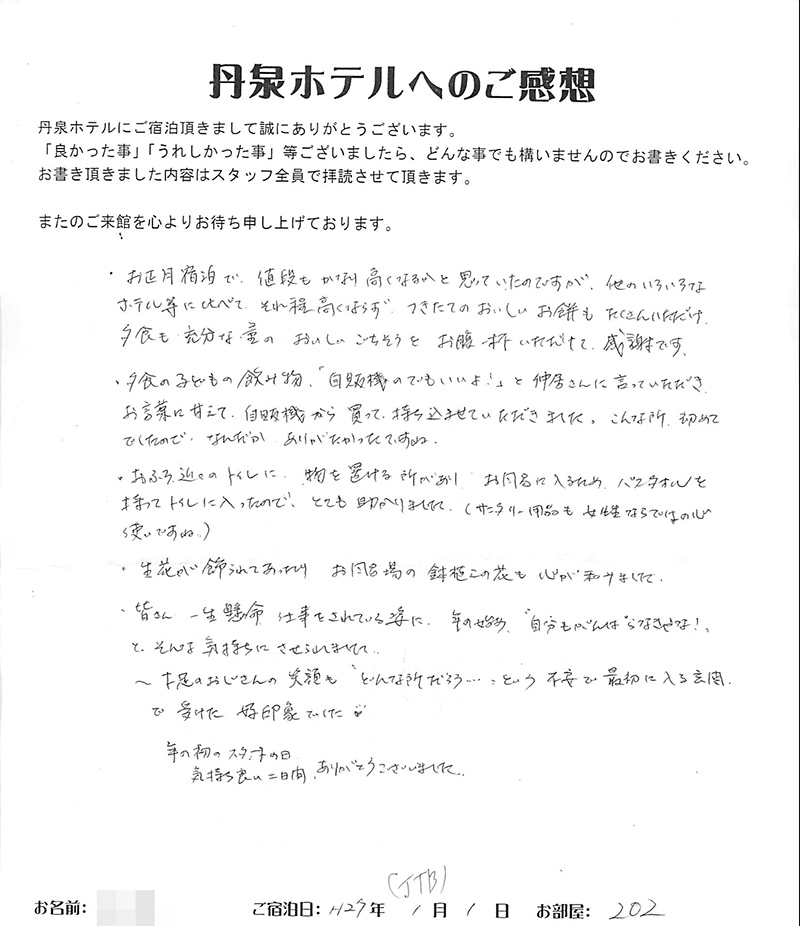 丹泉ホテルへのご感想
丹泉ホテルにご宿泊頂きまして誠にありがとうございます。
「良かった事」「うれしかった事」等ございましたら、どんな事でも構いませんのでお書きください。
お書き頂きました内容はスタッフ全員で拝読させて頂きます。
またのご来館を心よりお待ち申し上げております。
・お正月宿泊で、値段もかなり高くなるかと思っていたのですが、他のいろいろな
ホテル等に比べて、それ程高くならず、つきたてのおいしいお餅もたくさんいただけ、
夕食も充分な量のおいしいごちそうをお腹一杯いただけて、感謝です。
・夕食の子どもの飲み物、「自販機のでもいいよ!」と仲居さんに言っていただき、
お言葉に甘えて、自販機から買って、持ち込ませていただきました。こんな所、初めて
でしたので、なんだか、ありがたかったですね。
・おふろ近くのトイレに、物を置ける所があり、お風呂に入るため、バスタオルを
持ってトイレに入ったので、とても助かりました。(サニタリー用品も女性ならではの心
使いですね。)
・生花が飾られてあったり、お風呂場の鉢植えの花も心が和みました。
・皆さん一生懸命仕事をされている姿に、年の始め、"自分もがんばらなきゃな!"
と、そんな気持ちにさせられました。
～下足のおじさんの笑顔も"どんな所だろう…"という不安で最初に入る玄関
で受けた好印象でした
年の初のスタートの日
気持ち良い二日間、ありがとうございました。
(JTB)
お名前: ご宿泊日: H27年 1月 1日 お部屋: 202